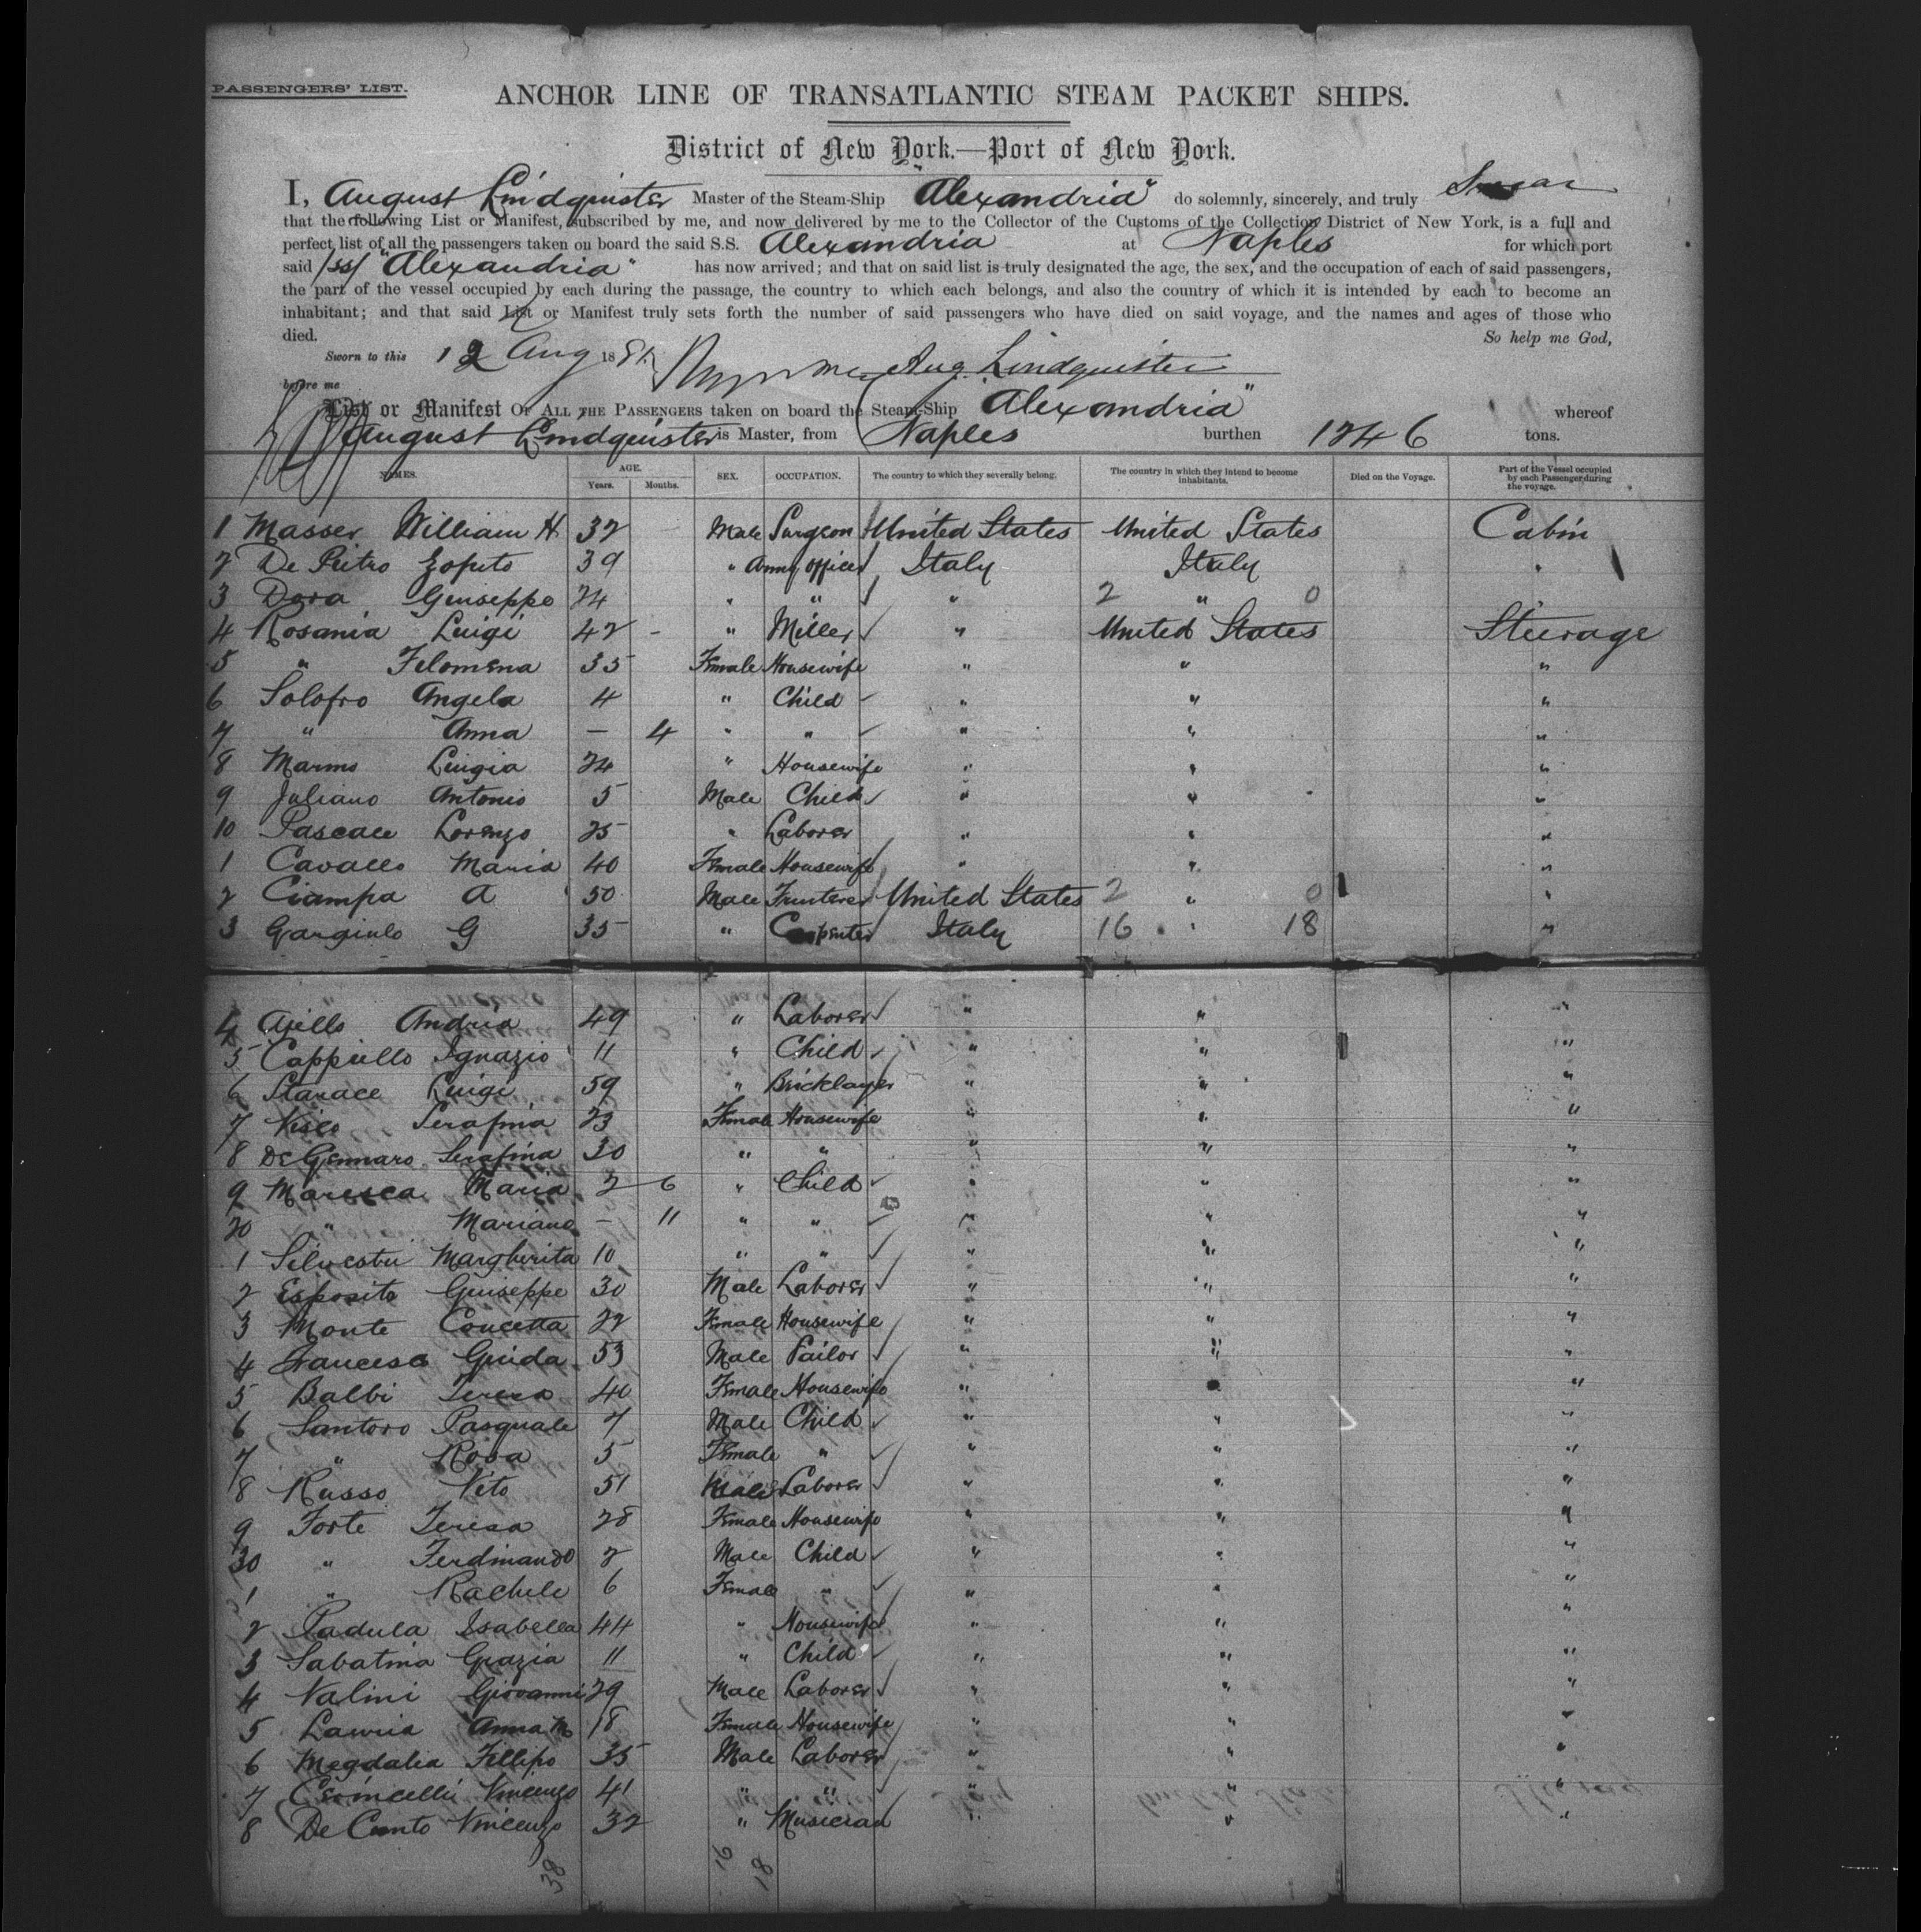 PASSENGERS' LIST.
ANCHOR LINE OF TRANSATLANTIC STEAM PACKET SHIPS.
District of New York.—Port of New York.
I, August Lindquister Master of the Steam-Ship "Alexandria" do solemnly, sincerely, and truly Swear
that the following List or Manifest, subscribed by me, and now delivered by me to the Collector of the Customs of the Collection District of New York, is a full and
perfect list of all the passengers taken on board the said S.S. Alexandria at Naples for which port
said /ss/ "Alexandria" has now arrived; and that on said list is truly designated the age, the sex, and the occupation of each of said passengers,
the part of the vessel occupied by each during the passage, the country to which each belongs, and also the country of which it is intended by each to become an
inhabitant; and that said List or Manifest truly sets forth the number of said passengers who have died on said voyage, and the names and ages of those who
died. So help me God,
Sworn to this 12 Aug 188 Aug. Lindquister
before me
List or Manifest OF ALL THE PASSENGERS taken on board the Steam-Ship Alexandria" whereof
August Lindquister is Master, from Naples burthen 1246 tons.
NAMES. AGE. Years. Months. SEX. OCCUPATION. The country to which they severally belong. The country in which they intend to become inhabitants. Died on the Voyage. Part of the Vessel occupied by each Passenger during the voyage.
1 Masser William H 32 Male Surgeon United States United States Cabin
2 De Pietro 39 " Army officer Italy Italy "
3 Dora Giuseppe 24 " " " 2 " 0 "
4 Rosania Luigi 42 - " Miller " United States Steerage
5 " Filomena 35 Female Housewife " " "
6 Solofro Angela 4 " Child " " "
7 " Anna — 4 " " " " "
8 Marmo Luigia 24 " Housewife " " "
9 Juliano Antonio 5 Male Child " " "
10 Pascale Lorenzo 25 " Laborer " " "
1 Cavallo Maria 40 Female Housewife " " "
2 Ciampa A 50 Male Fruiterer United States 2 " 0 "
3 Gargiulo G 35 " Carpenter Italy 16 " 18 "
4 Ajello Andria 49 " Laborer " " "
5 Cappiello Ignazio 11 " Child " " "
6 Starace Luigi 59 " Bricklayer " " "
7 Visco Serafina 23 Female Housewife " " "
8 De Gennaro Serafina 30 " " " " "
9 Maresca Maria 2 6 " Child " " "
20 " Mariano — 11 " " " " "
1 Silvestri Margherita 10 " " " " "
2 Esposito Giuseppe 30 Male Laborer " " "
3 Monte Concetta 22 Female Housewife " " "
4 Francesco Guida 53 Male Tailor " " "
5 Balbi Teresa 40 Female Housewife " " "
6 Santoro Pasquale 7 Male Child " " "
7 " Rosa 5 Female " " " "
8 Russo Vito 51 Male Laborer " " "
9 Forte Teresa 28 Female Housewife " " "
30 " Ferdinando 2 Male Child " " "
1 " Rachele 6 Female " " " "
2 Padula Isabella 44 " Housewife " " "
3 Sabatina Grazia 11 " Child " " "
4 Valini Giovanni 29 Male Laborer " " "
5 Lauria Anna M 18 Female Housewife " " "
6 Megdalia Fillipo 35 Male Laborer " " "
7 Vincenzo 41 " " " " "
8 De Cunto Vincenzo 32 " Musician " " "
38 16 18